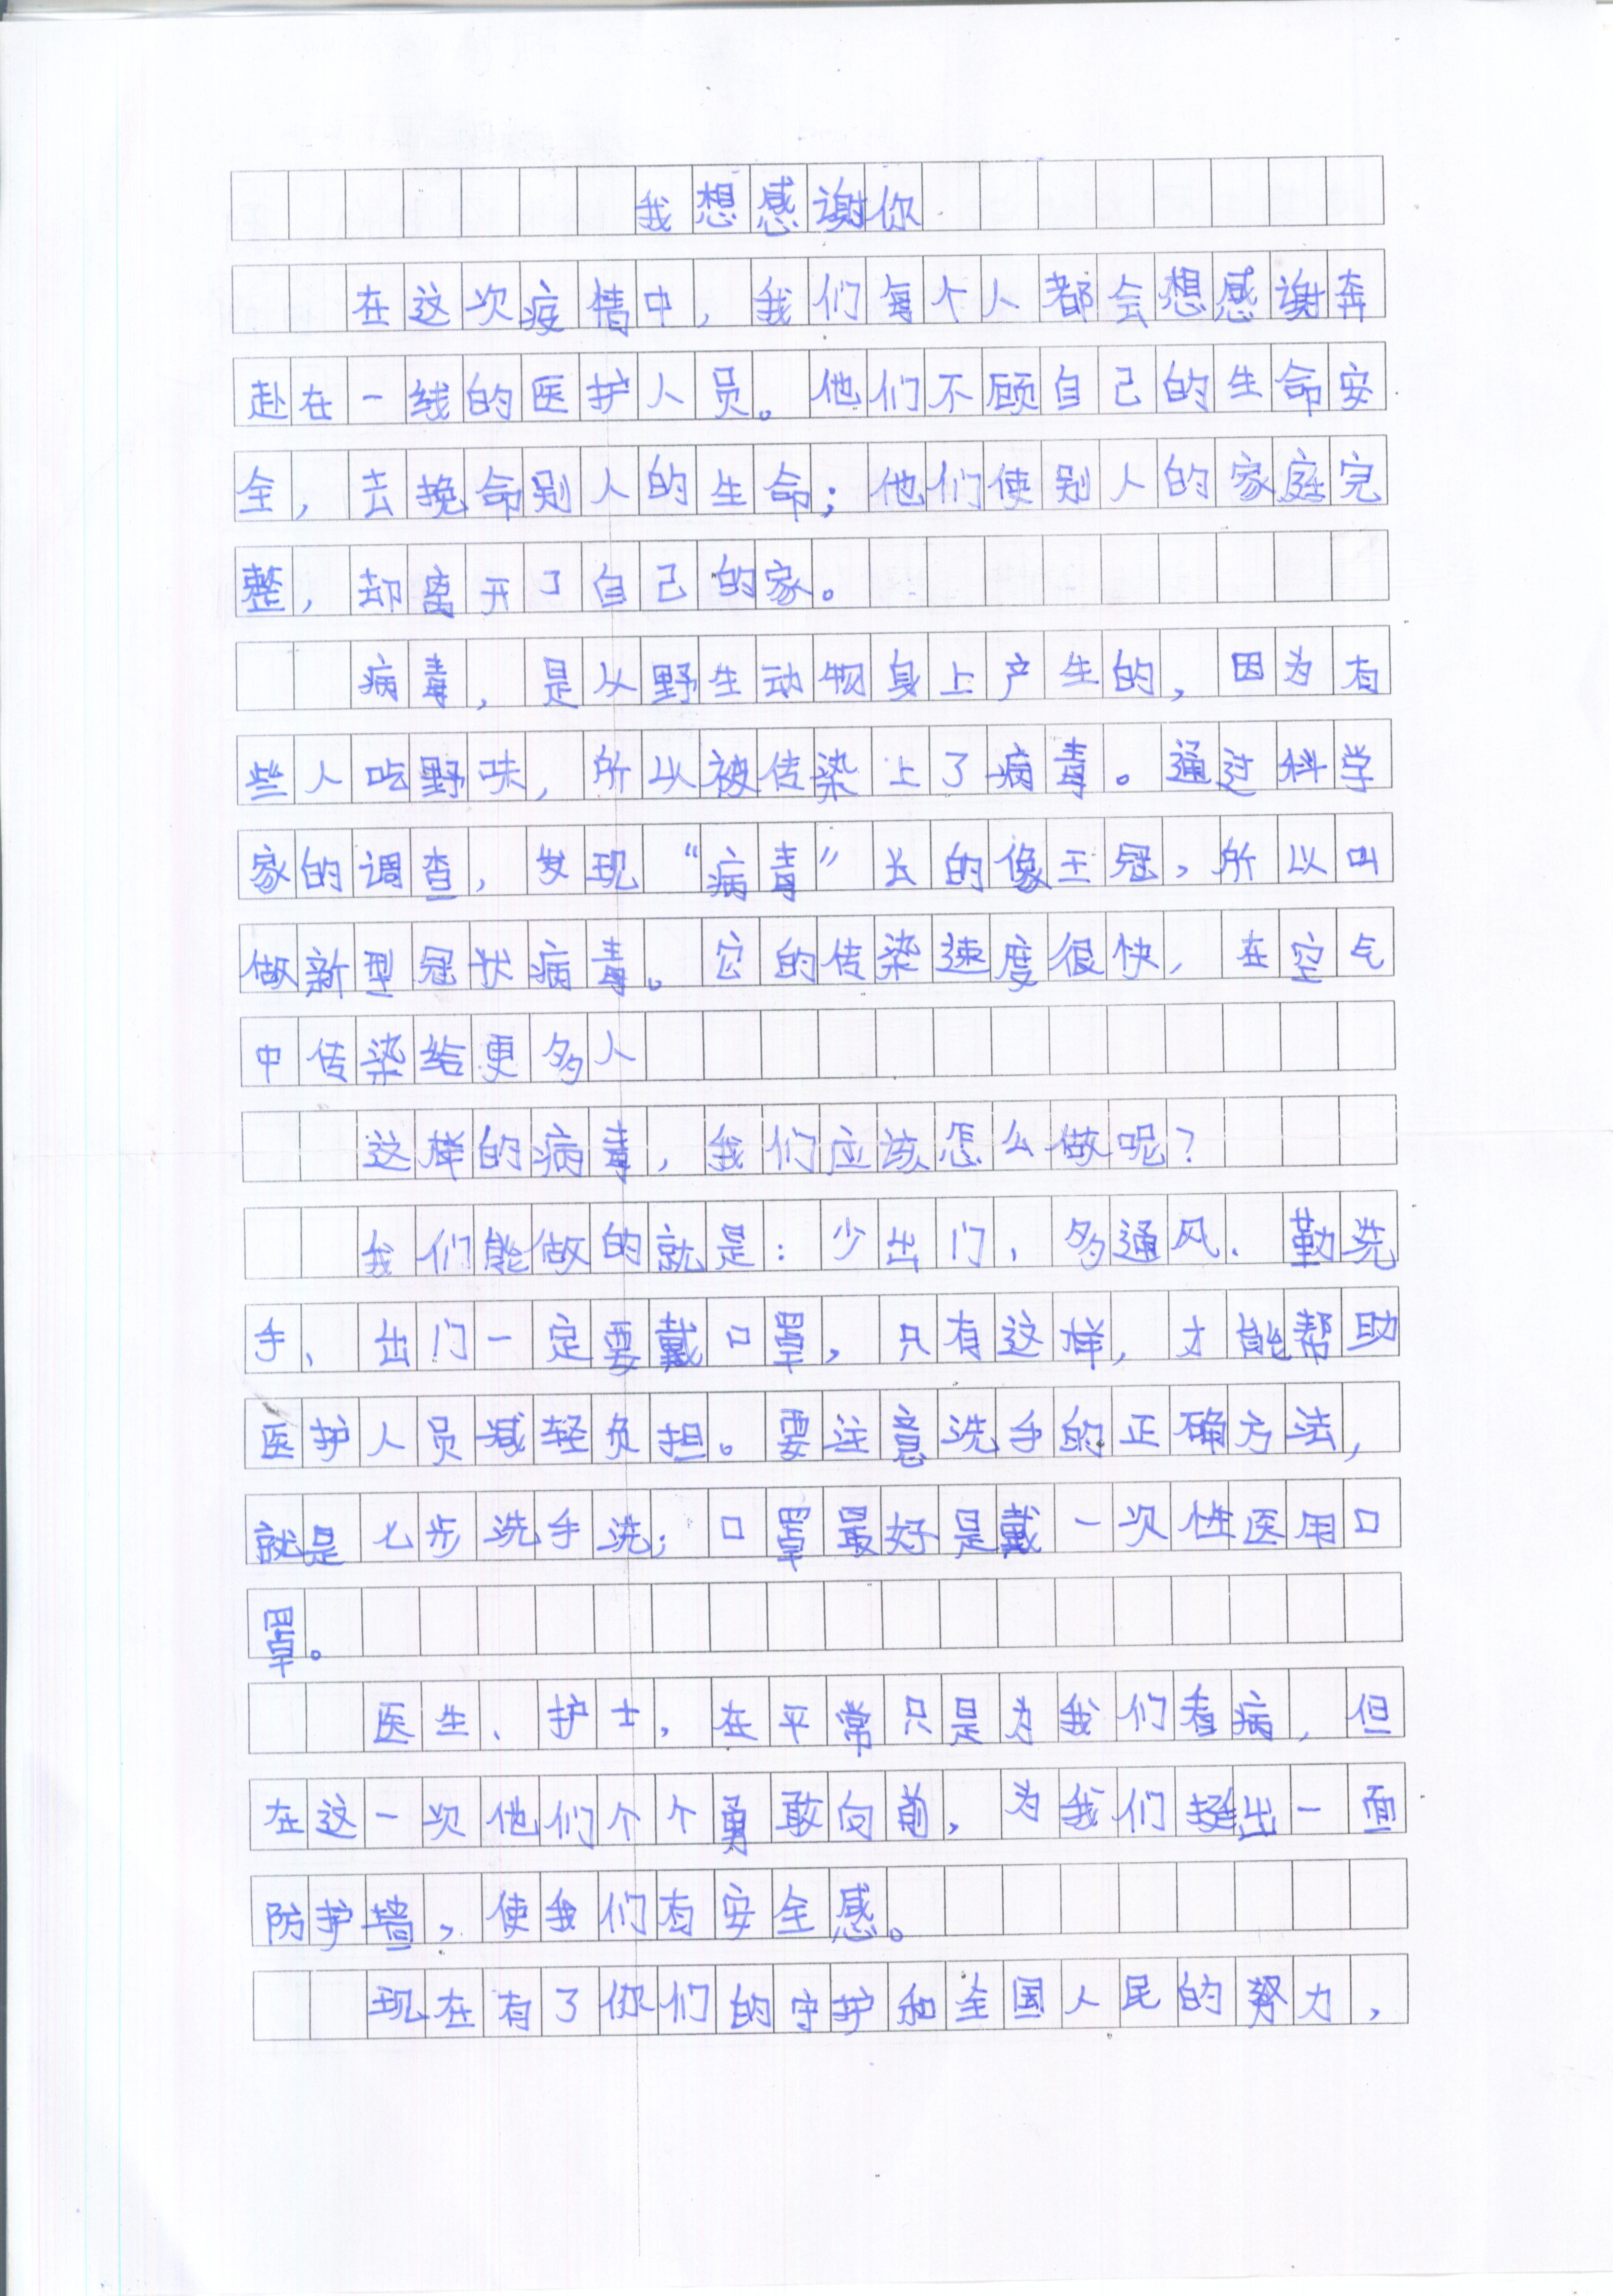 我想感谢你
在这次疫情中，我们每个人都会想感谢奔
赴在一线的医护人员。他们不顾自己的生命安
全，去挽命别人的生命；他们使别人的家庭完
整，却离开了自己的家。
病毒，是从野生动物身上产生的，因为有
些人吃野味，所以被传染上了病毒。通过科学
家的调查，发现“病毒”长的像王冠，所以叫
做新型冠状病毒。它的传染速度很快，在空气
中传染给更多人
这样的病毒，我们应该怎么做呢？
我们能做的就是：少出门、多通风、勤洗
手、出门一定要戴口罩，只有这样，才能帮助
医护人员减轻负担。要注意洗手的正确方法，
就是七步洗手洗；口罩最好是戴一次性医用口
罩。
医生、护士，在平常只是为我们看病，但
在这一次他们个个勇敢向前，为我们挺出一面
防护墙，使我们有安全感。
现在有了你们的守护和全国人民的努力，